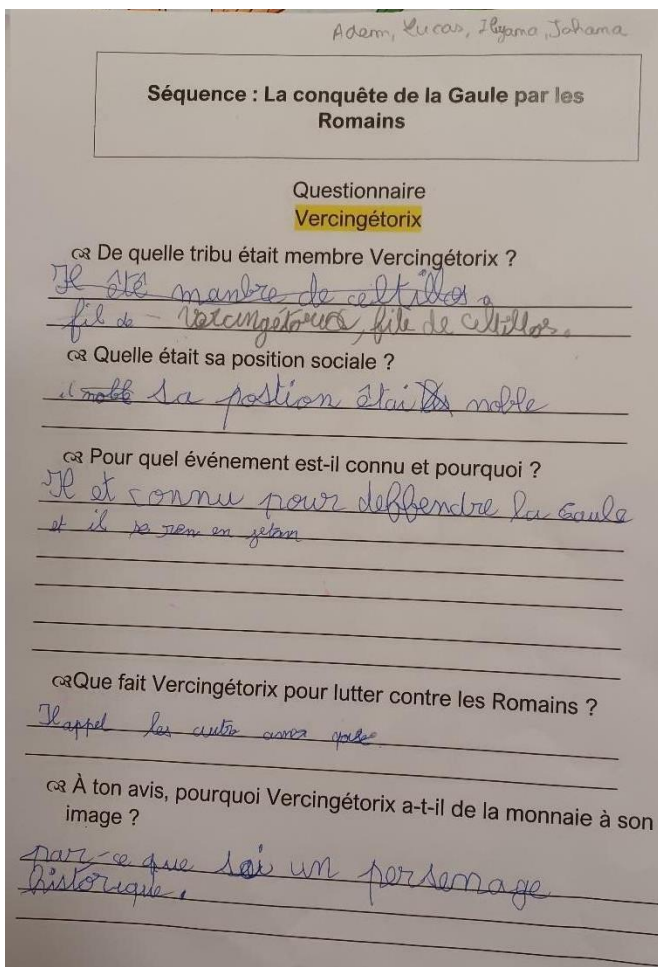 Adem, Lucas, Ilyana, Johana
Séquence : La conquête de la Gaule par les
Romains
Questionnaire
Vercingétorix
De quelle tribu était membre Vercingétorix ?
Il été manbre de celtillos
fil de - vercingétorix, file de celtillos.
Quelle était sa position sociale ?
il noble sa postion étai noble
Pour quel événement est-il connu et pourquoi ?
Il et connu pour deffendre la Gaule
et il se ren en jetan
Que fait Vercingétorix pour lutter contre les Romains ?
Il appel les autre
À ton avis, pourquoi Vercingétorix a-t-il de la monnaie à son
image ?
par-ce que un persenage
historique.